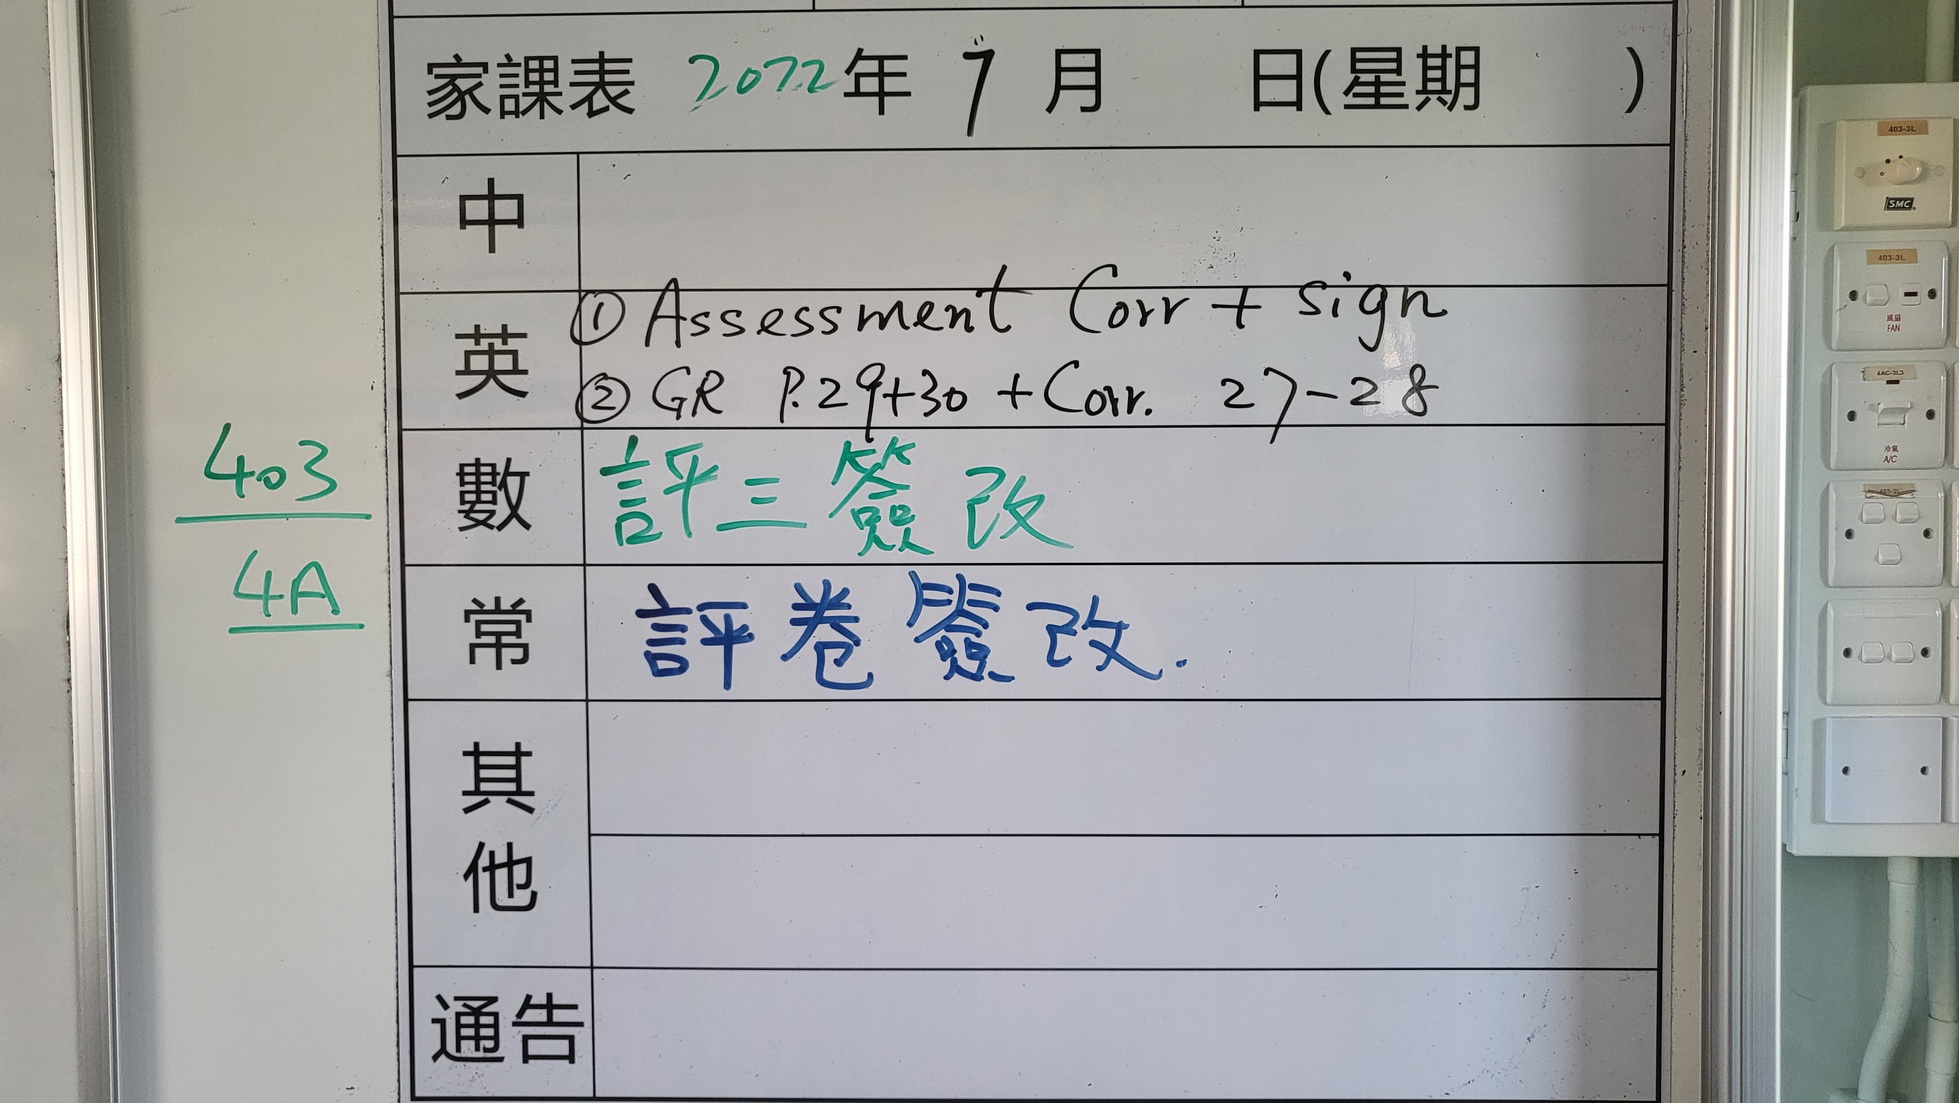 家課表 2022年 7 月 日(星期 )
中
英 ① Assessment Corr + sign
② GR P.29+30 + Corr. 27-28
數 評三簽改
常 評卷簽改.
其他
通告
403
4A
403-3L
SMC
403-3L
風扇
FAN
4AC-3L3
冷氣
A/C